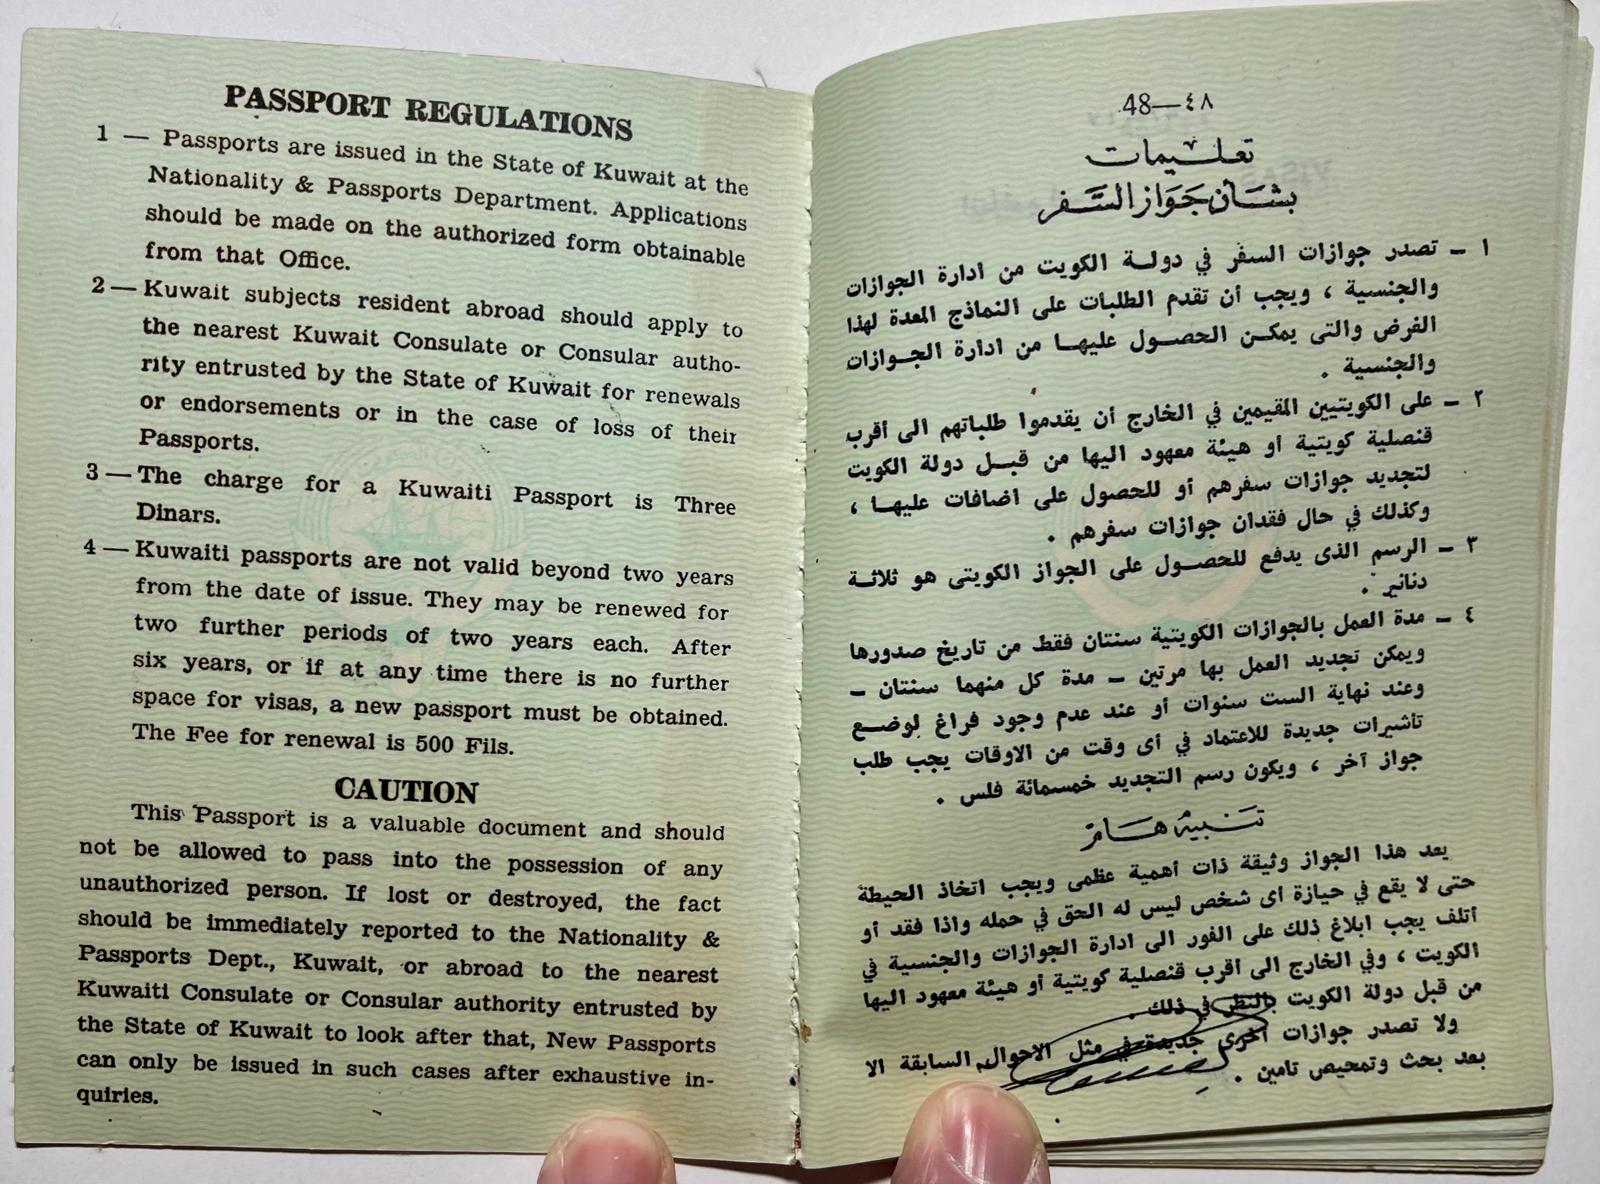 PASSPORT REGULATIONS
1 — Passports are issued in the State of Kuwait at the
Nationality & Passports Department. Applications
should be made on the authorized form obtainable
from that Office.
2 — Kuwait subjects resident abroad should apply to
the nearest Kuwait Consulate or Consular autho-
rity entrusted by the State of Kuwait for renewals
or endorsements or in the case of loss of their
Passports.
3 — The charge for a Kuwaiti Passport is Three
Dinars.
4 — Kuwaiti passports are not valid beyond two years
from the date of issue. They may be renewed for
two further periods of two years each. After
six years, or if at any time there is no further
space for visas, a new passport must be obtained.
The Fee for renewal is 500 Fils.
CAUTION
This Passport is a valuable document and should
not be allowed to pass into the possession of any
unauthorized person. If lost or destroyed, the fact
should be immediately reported to the Nationality &
Passports Dept., Kuwait, or abroad to the nearest
Kuwaiti Consulate or Consular authority entrusted by
the State of Kuwait to look after that, New Passports
can only be issued in such cases after exhaustive in-
quiries.
48—٤٨
تعليمات
بشأن جواز السفر
١ – تصدر جوازات السفر في دولة الكويت من ادارة الجوازات
والجنسية ، ويجب أن تقدم الطلبات على النماذج المعدة لهذا
الغرض والتى يمكن الحصول عليها من ادارة الجوازات
والجنسية .
٢ – على الكويتيين المقيمين في الخارج أن يقدموا طلباتهم الى أقرب
قنصلية كويتية أو هيئة معهود اليها من قبل دولة الكويت
لتجديد جوازات سفرهم أو للحصول على اضافات عليها ،
وكذلك في حال فقدان جوازات سفرهم .
٣ – الرسم الذى يدفع للحصول على الجواز الكويتى هو ثلاثة
دنانير .
٤ – مدة العمل بالجوازات الكويتية سنتان فقط من تاريخ صدورها
ويمكن تجديد العمل بها مرتين – مدة كل منهما سنتان –
وعند نهاية الست سنوات أو عند عدم وجود فراغ لوضع
تأشيرات جديدة للاعتماد في أى وقت من الاوقات يجب طلب
جواز آخر ، ويكون رسم التجديد خمسمائة فلس .
تنبيه هام
يعد هذا الجواز وثيقة ذات أهمية عظمى ويجب اتخاذ الحيطة
حتى لا يقع في حيازة اى شخص ليس له الحق في حمله واذا فقد أو
أتلف يجب ابلاغ ذلك على الفور الى ادارة الجوازات والجنسية في
الكويت ، وفي الخارج الى أقرب قنصلية كويتية أو هيئة معهود اليها
من قبل دولة الكويت بالنظر في ذلك .
ولا تصدر جوازات أخرى جديدة في مثل الاحوال السابقة الا
بعد بحث وتمحيص تامين .